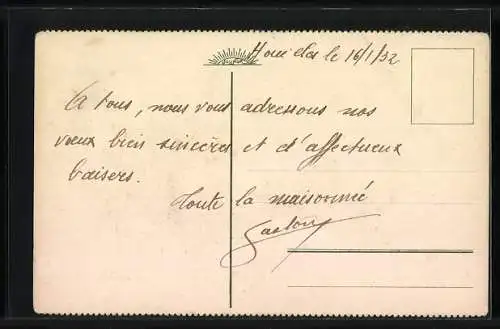 le 16/1/32
A tous, nous vous adressons nos
vœux bien sincères et d'affectueux
baisers.
Toute la maisonnée
Gaston